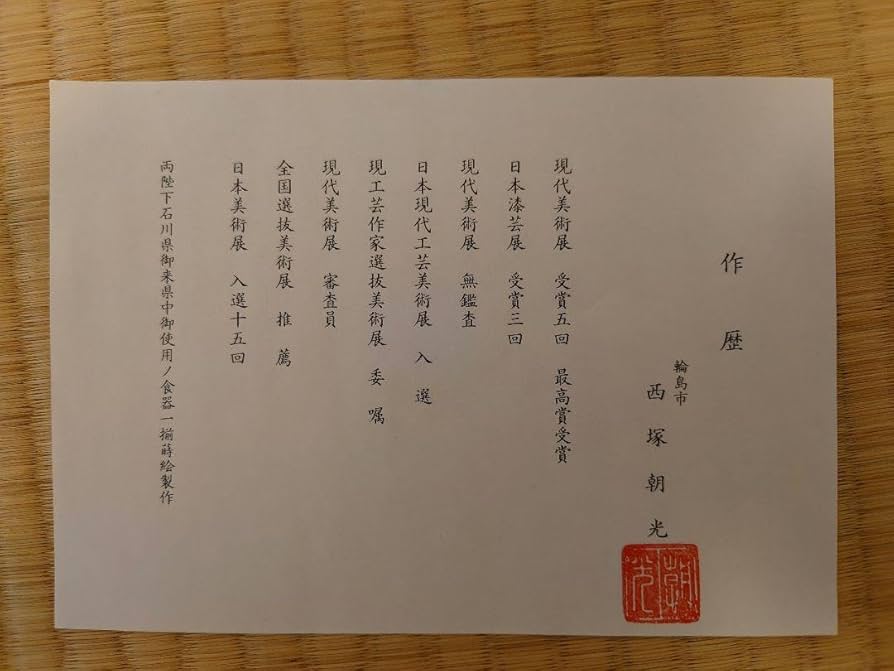 作歴
輪島市
西塚朝光
現代美術展 受賞五回 最高賞受賞
日本漆芸展 受賞三回
現代美術展 無鑑査
日本現代工芸美術展 入選
現工芸作家選抜美術展 委嘱
現代美術展 審査員
全国選抜美術展 推薦
日本美術展 入選十五回
両陛下石川県御来県中御使用ノ食器一揃蒔絵製作
朝光